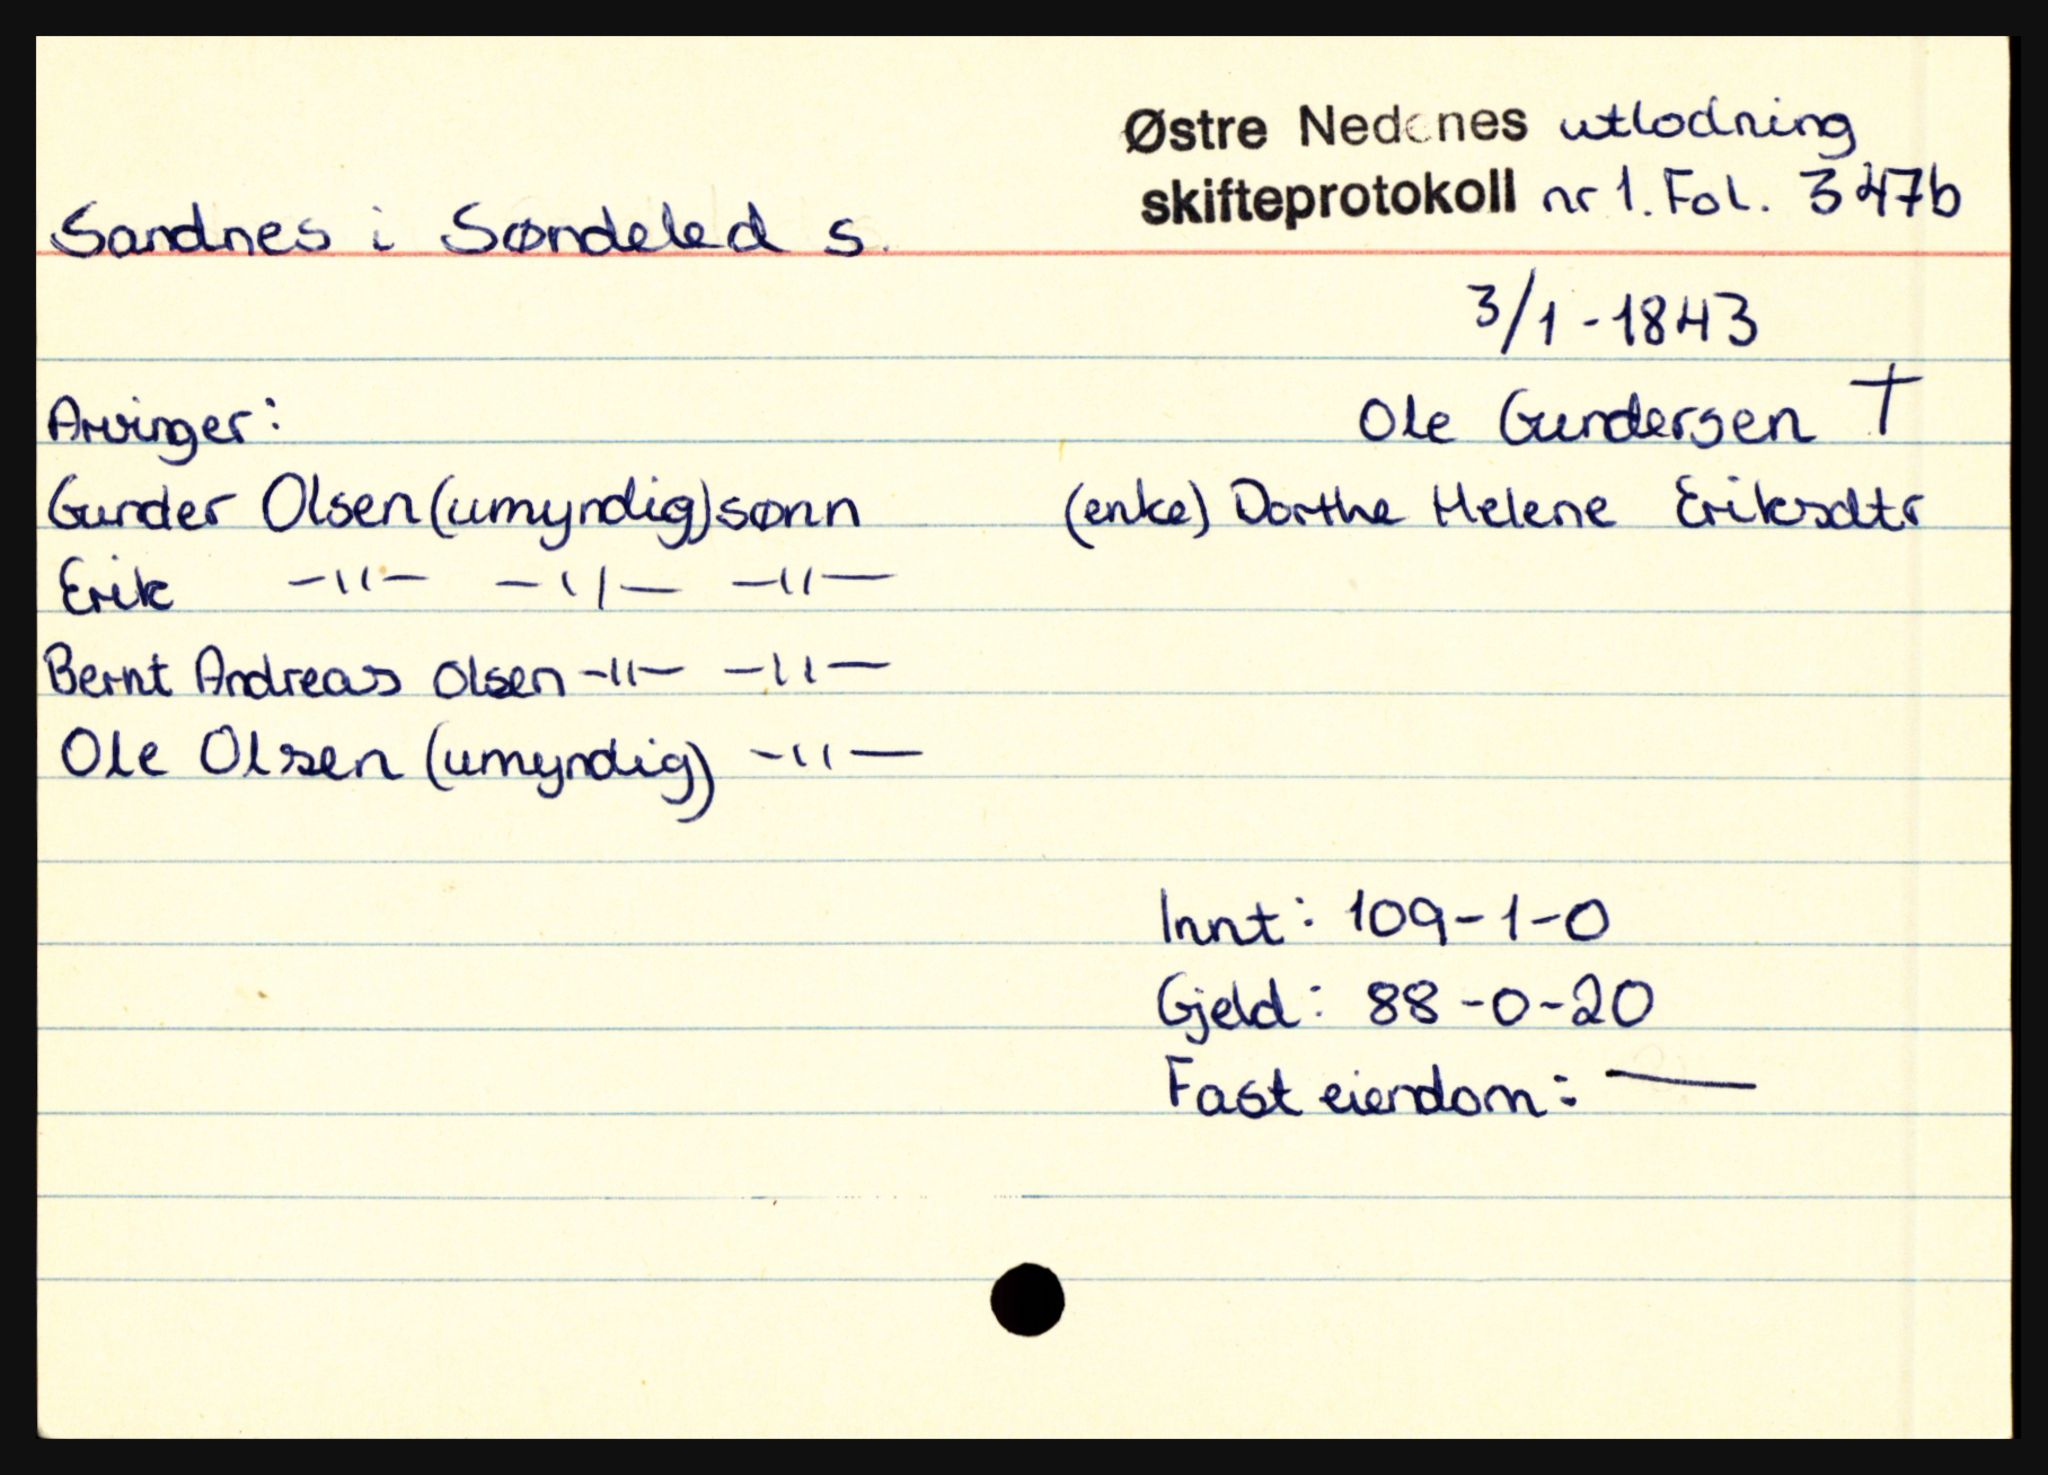 Østre Nedenes utlodning
skifteprotokoll nr 1. Fol. 347b
Sandnes i Søndeled s.
3/1 - 1843
Arvinger:
Ole Gundersen †
Gunder Olsen (umyndig) sønn
(enke) Dorthe Helene Eriksdtr
Erik -"- -"- -"-
Bernt Andreas Olsen -"- -"-
Ole Olsen (umyndig) -"-
Innt: 109-1-0
Gjeld: 88-0-20
Fast eiendom: —